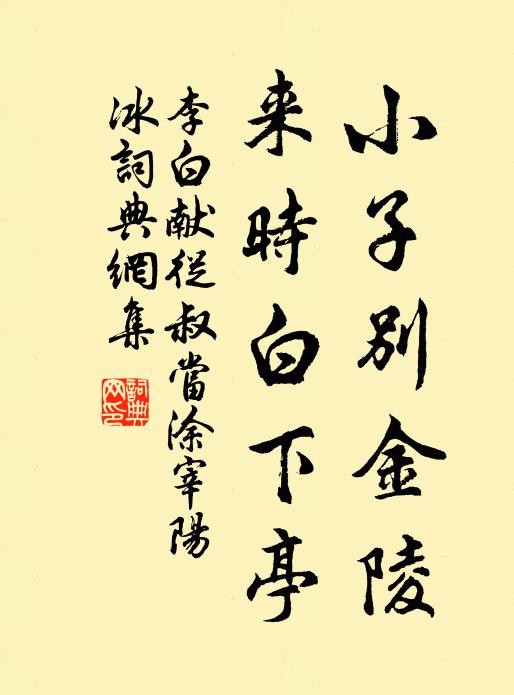 小子别金陵
来時白下亭
李白献從叔當涂宰陽
冰詞典網集
詞典
网印